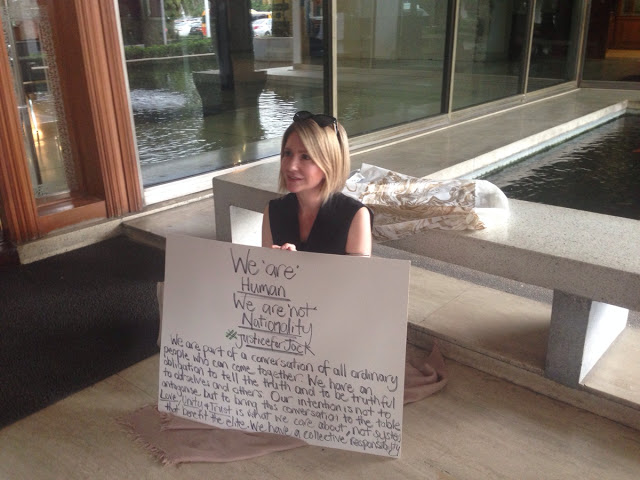 We are
Human
We are not
Nationality
#JusticeforJock
We are part of a conversation of all ordinary
people who can come together. We have an
obligation to tell the truth and to be truthful
to ourselves and others. Our intention is not to
antagonise but to bring this conversation to the table
Love/Unity+Trust is what we care about, not systems
that benefit the elite. We have a collective Responsibility